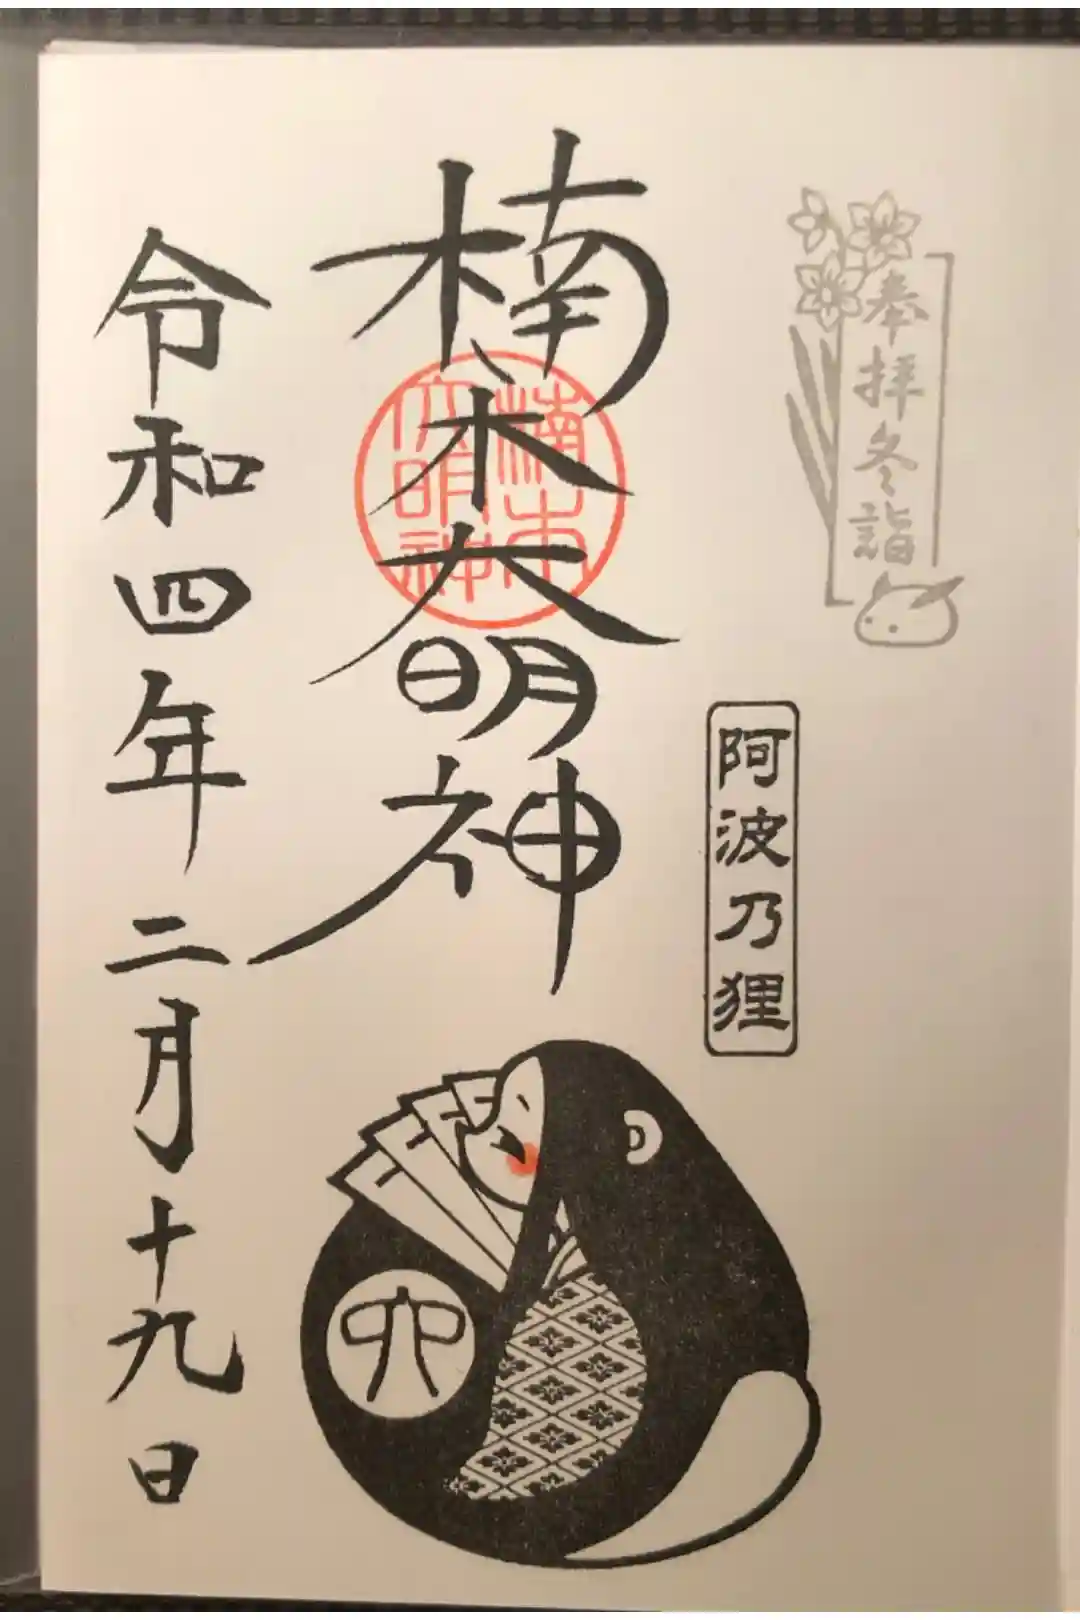 奉拝冬詣
阿波乃狸
楠木大明神
楠木
大明神
令和四年二月十九日